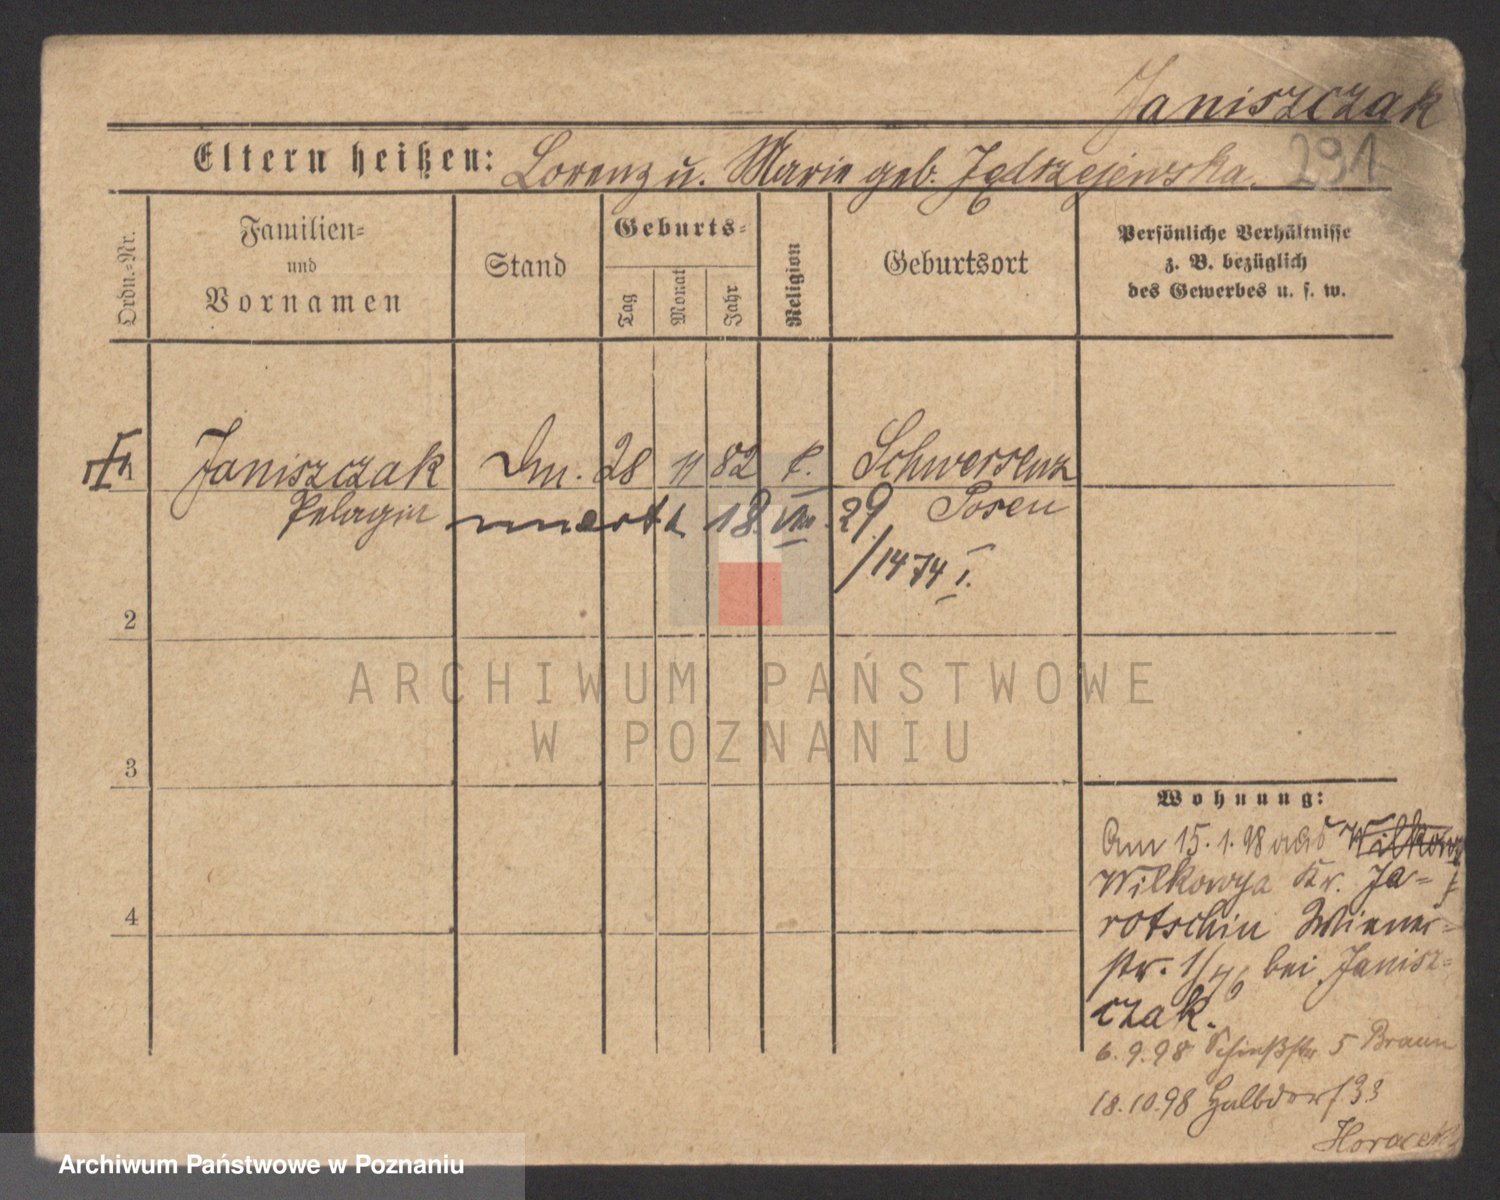 Janiszczak
Eltern heißen: Lorenz u. Marie geb. Jędrzejewska. 291
Ordn.-Nr.
Familien-
und
Vornamen
Stand
Geburts-
Tag
Monat
Jahr
Religion
Geburtsort
Persönliche Verhältnisse
z. B. bezüglich
des Gewerbes u. s. w.
1 Janiszczak 28 11 82 k. Schwersenz
Pelagia Posen
umarła 18. VIII. 29
/1474 I.
2
3
4
Wohnung:
Am 15.1.98 aus Wilkowy
Wilkowya Kr. Ja-
rotschin Wiener-
str. bei Janisz-
czak.
6.9.98 Schießstr 5 Braun
18.10.98 Halbdorf 33
Horacek
ARCHIWUM PAŃSTWOWE
W POZNANIU
Archiwum Państwowe w Poznaniu